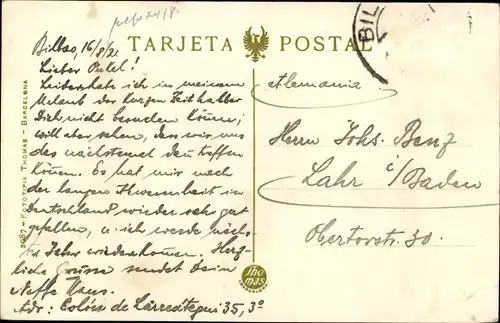 TARJETA POSTAL
BIL
Bilbao, 16/8/2
Lieber Onkel!
Leider habe ich in meinem
Urlaub der kurzen Zeit halber
Dich nicht besuchen können;
will aber sehen, dass wir uns
das nächstemal dann treffen
können. Es hat mir nach
der langen Abwesenheit in
Deutschland wieder sehr gut
gefallen, u. ich werde nächs-
tes Jahr wiederkommen. Herz-
liche Grüsse sendet Dein
Neffe Hans.
Adr: Colón de Larreátegui 35, 3º
Alemania
Herrn Johs. Benz
Lahr i/Baden
Obertorstr. 30.
2087 - FOTOTIPIA THOMAS - BARCELONA
Thomas